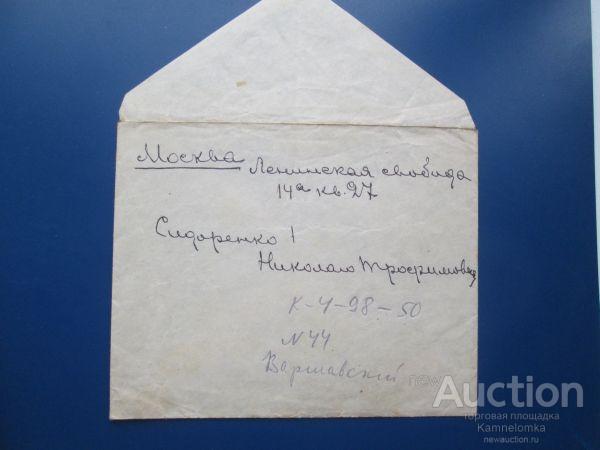 Москва Ленинская свобода
14а кв. 27
Сидоренко!
Николаю Трофимовичу
К-4-98-50
N 44
Варшавский
newAuction
торговая площадка
Kamnelomka
newauction.ru